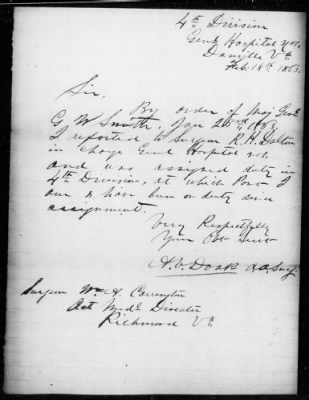 4th Division
Genl Hospital No.
Danville Va
Feb. 18th 1863.
Sir,
By order of Maj Genl
G. W. Smith, Jan 1863
I reported to Surgeon R. H. Dalton
in charge Genl Hospital
and was assigned duty in
4th Division, at which Post I
am & have been on duty since
assignment.
Very Respectfully
Your Obt Servt
A. V. Doak A. A. Surg.
Surgeon Wm A. Carrington
Act Medl Director
Richmond Va